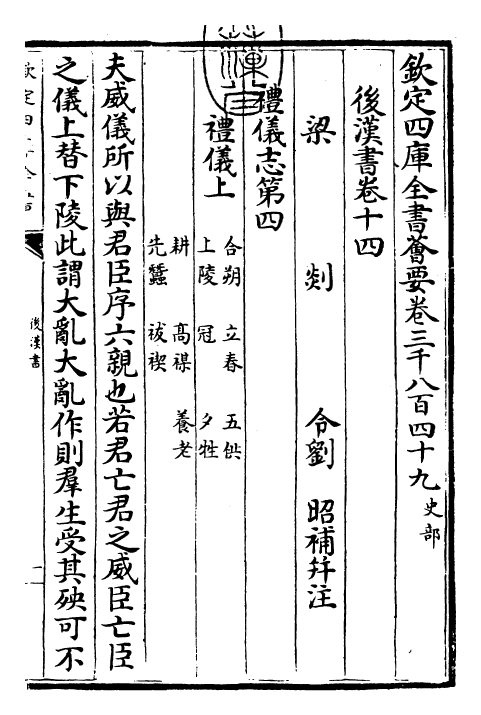 欽定四庫全書薈要卷三千八百四十九 史部
後漢書卷十四
梁 剡 令劉 昭補幷注
禮儀志第四
禮儀上
合朔 立春 五供
上陵 冠 夕牲
耕 高禖 養老
先蠶 祓禊
夫威儀所以與君臣序六親也若君亡君之威臣亡臣
之儀上替下陵此謂大亂大亂作則羣生受其殃可不
後漢書